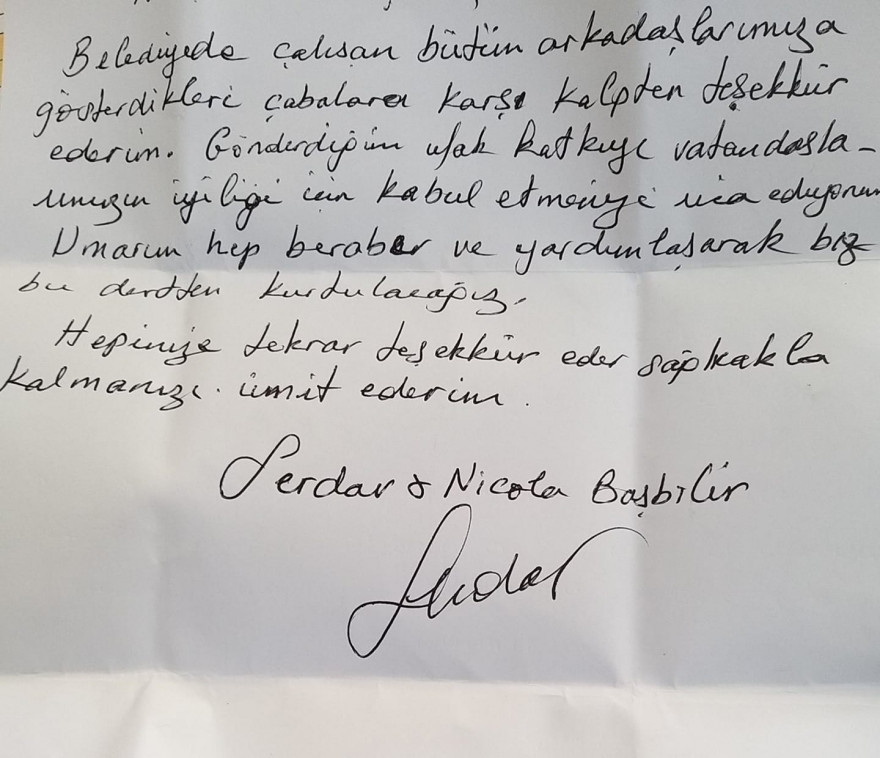 Belediyede çalışan bütün arkadaşlarımıza
gösterdikleri çabalara karşı kalpten teşekkür
ederim. Gönderdiğim ufak katkıyı vatandaşla-
rımızın iyiliği için kabul etmeniyi rica ediyorum
Umarım hep beraber ve yardımlaşarak biz
bu dertten kurtulacağız.
Hepinize tekrar teşekkür eder sağlıkla
kalmanızı ümit ederim.
Serdar & Nicola Başbilir
Serdar